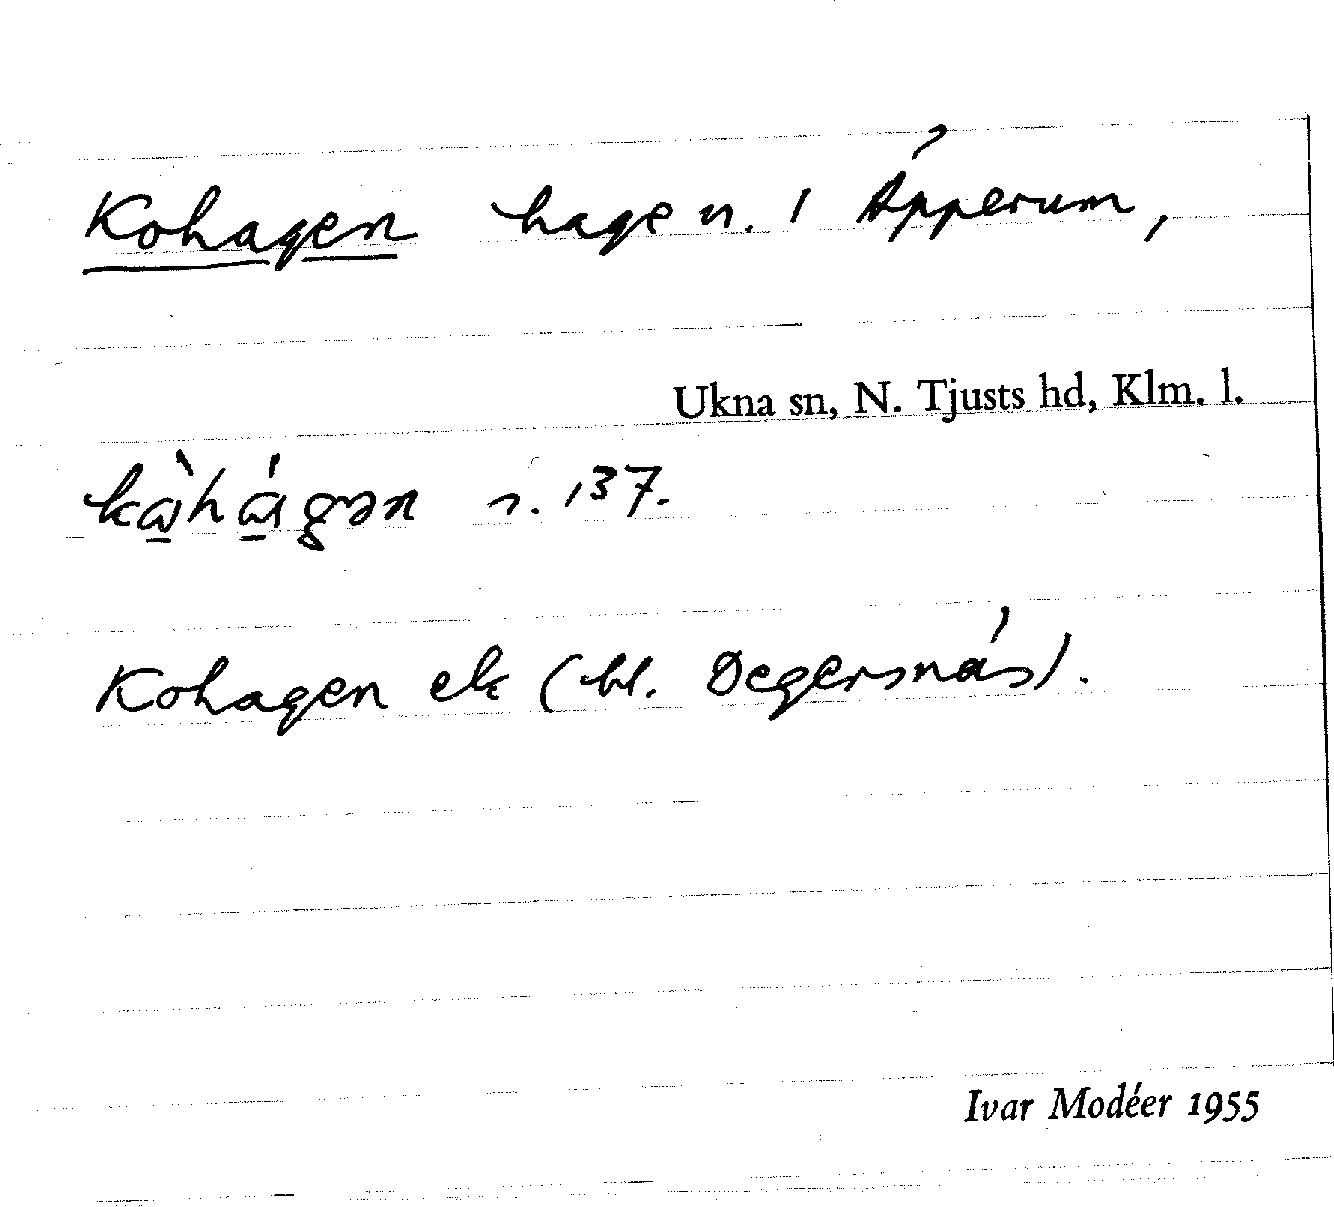 Kohagen hage n. 1 Äpperum,
Ukna sn, N. Tjusts hd, Klm. l.
n. 137.
Kohagen ek (bl. Degersnäs).
Ivar Modéer 1955